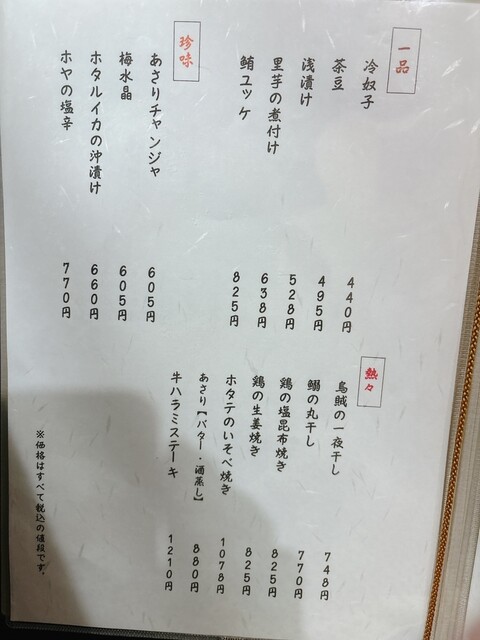 一品
冷奴子 440円
茶豆 495円
浅漬け 528円
里芋の煮付け 638円
鮪ユッケ 825円
珍味
あさりチャンジャ 605円
梅水晶 605円
ホタルイカの沖漬け 660円
ホヤの塩辛 770円
熱々
烏賊の一夜干し 748円
鰯の丸干し 770円
鶏の塩昆布焼き 825円
鶏の生姜焼き 825円
ホタテのいそべ焼き 1078円
あさり【バター・酒蒸し】 880円
牛ハラミステーキ 1210円
※価格はすべて税込の値段です。